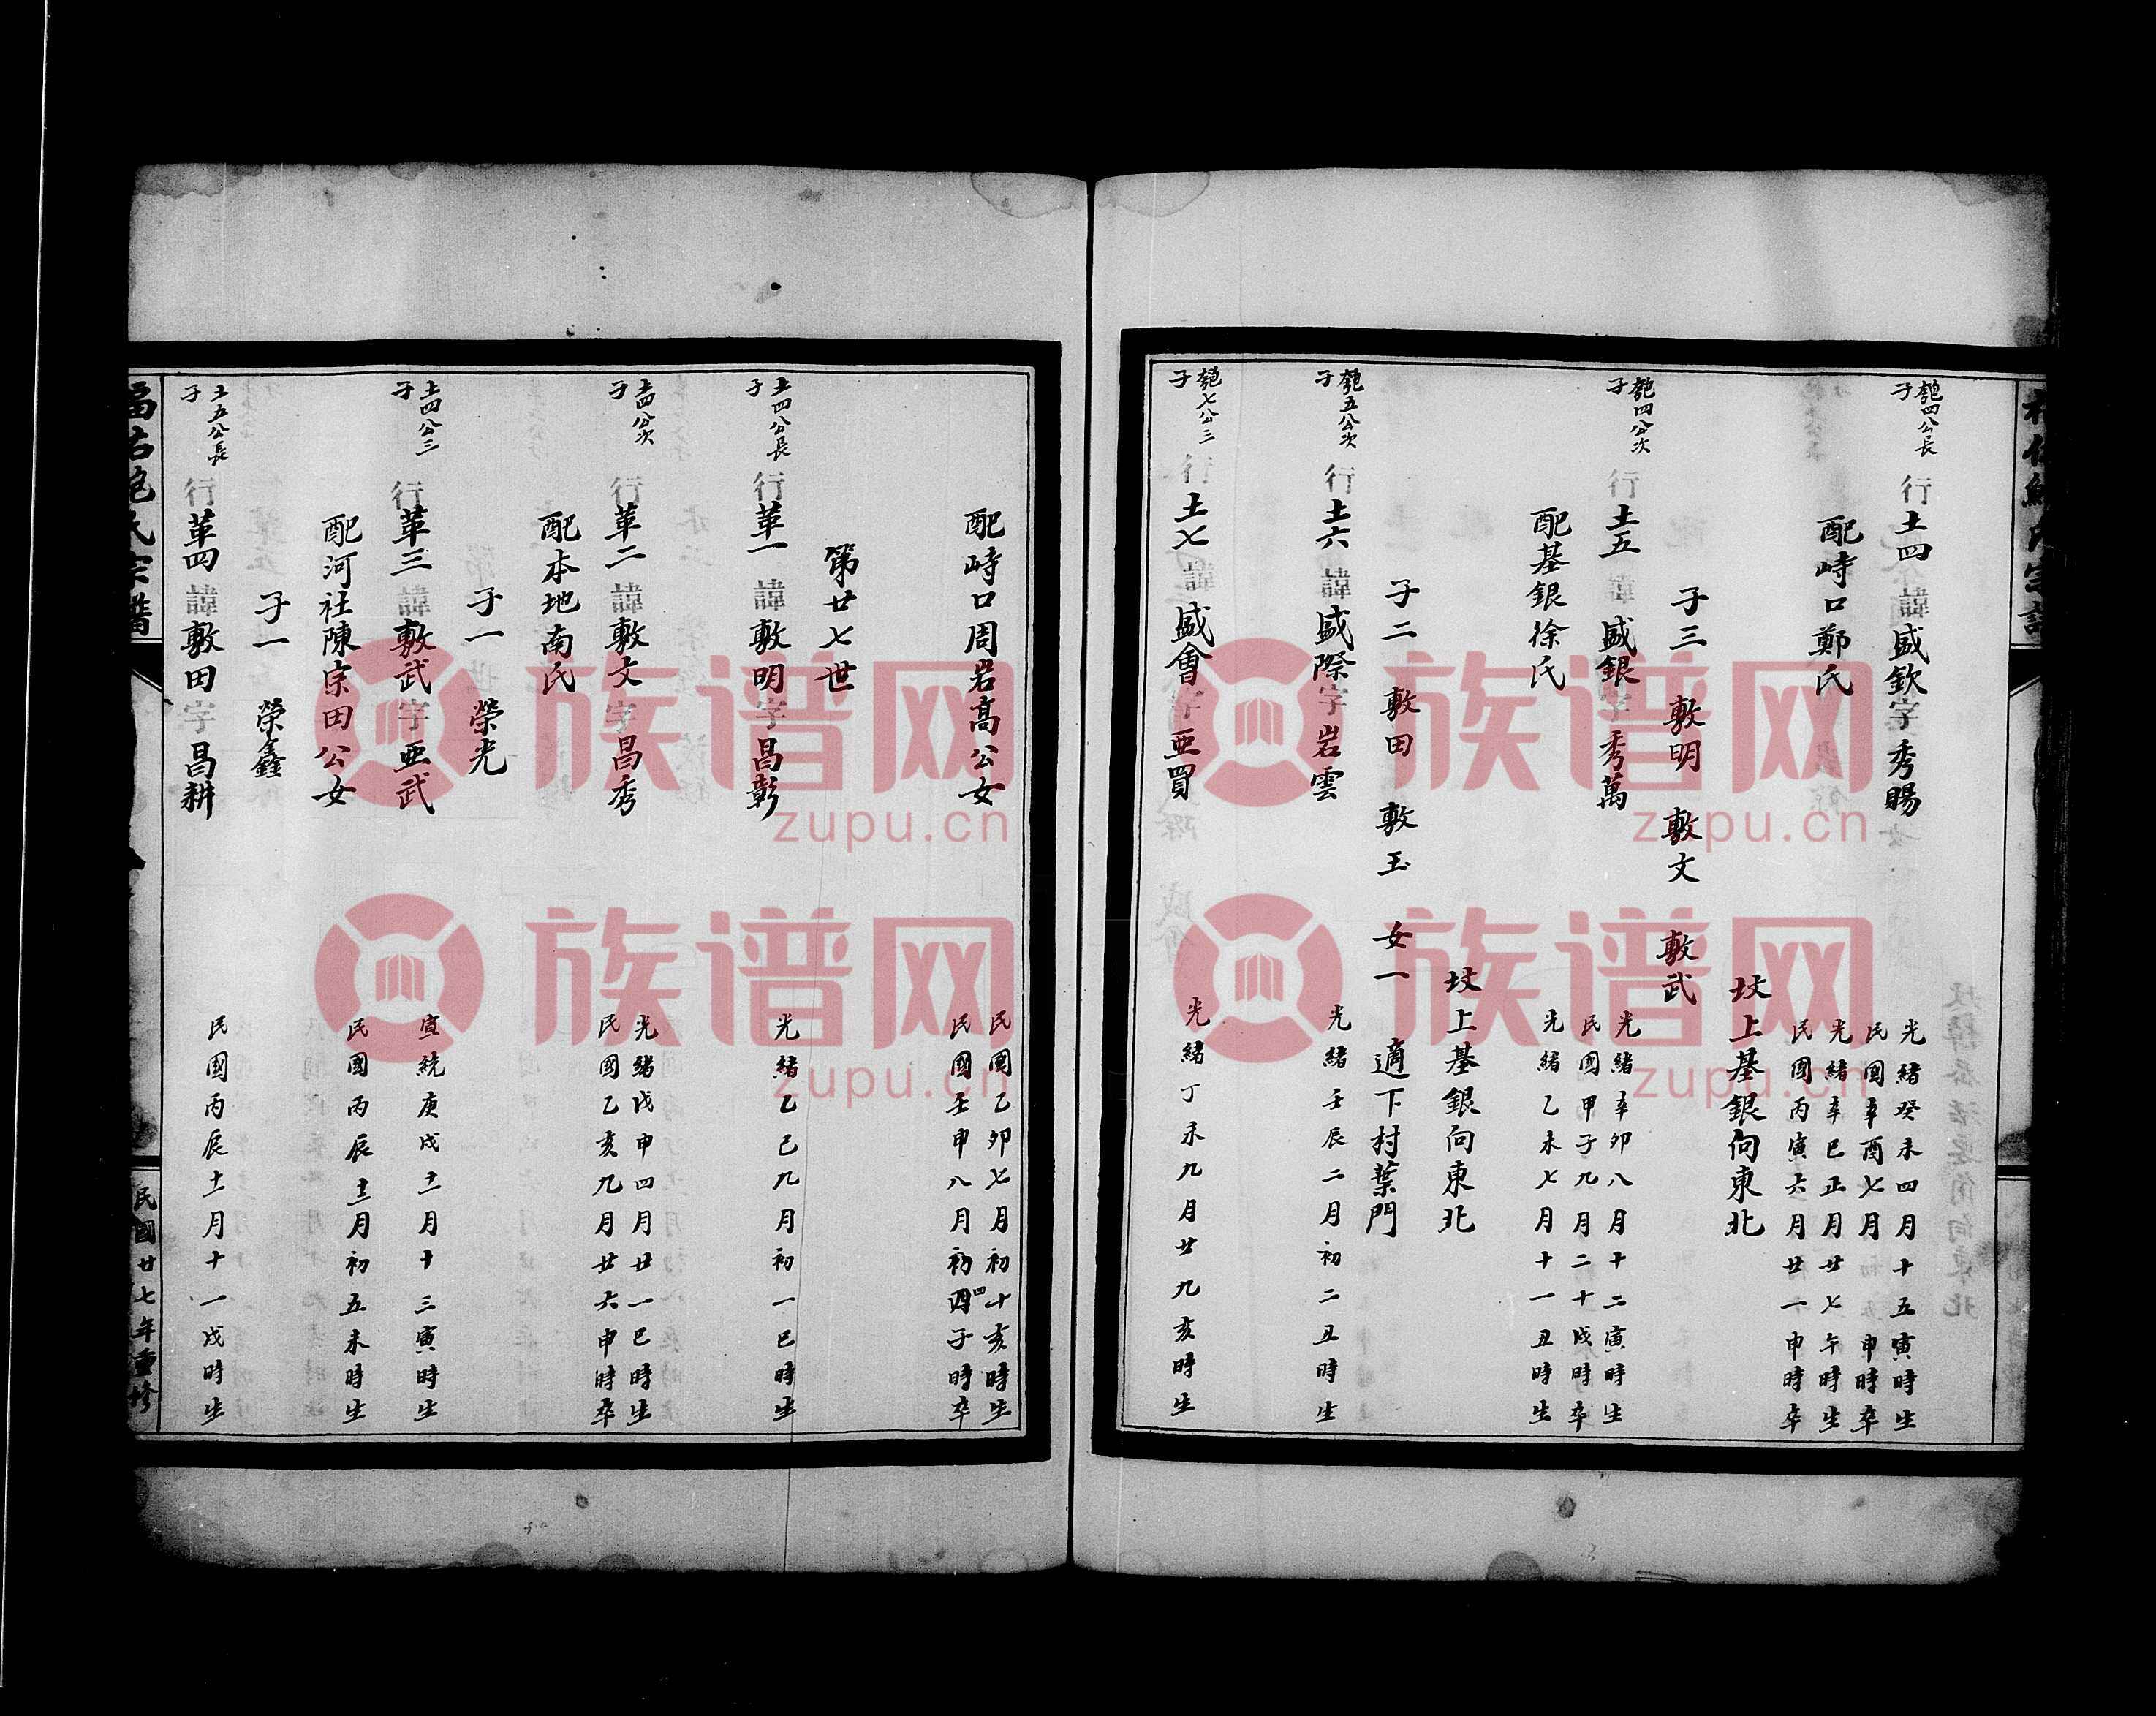 匏四公長子
行土四諱盛欽字秀賜
光緒癸未四月十五寅時生
民國辛酉七月　申時卒
配峙口鄭氏
光緒辛巳正月廿七午時生
民國丙寅六月廿一申時卒
坟上基銀向東北
子三　敷明　敷文　敷武
匏四公次子
行土五諱盛銀字秀萬
光緒辛卯八月十二寅時生
民國甲子九月二十戌時卒
配基銀徐氏
光緒乙未七月十一丑時生
坟上基銀向東北
子二　敷田　敷玉　女一　適下村葉門
匏五公次子
行土六諱盛際字岩雲
光緒壬辰二月初二丑時生
匏七公三子
行土七諱盛會字亜買
光緒丁未九月廿九亥時生
配峙口周岩高公女
民國乙卯七月初十亥時生
民國壬申八月初四子時卒
第廿七世
土四公長子
行革一諱敷明字昌彰
光緒乙巳九月初一巳時生
土四公次子
行革二諱敷文字昌秀
光緒戊申四月廿一巳時生
民國乙亥九月廿六申時卒
配本地南氏
子一　榮光
土四公三子
行革三諱敷武字亜武
宣統庚戌十二月十三寅時生
配河社陳宗田公女
民國丙辰十二月初五未時生
子一　榮鑫
土五公長子
行革四諱敷田字昌耕
民國丙辰十一月十一戌時生
民國廿七年重修
族谱网
zupu.cn
族谱网
zupu.cn
族谱网
zupu.cn
族谱网
zupu.cn